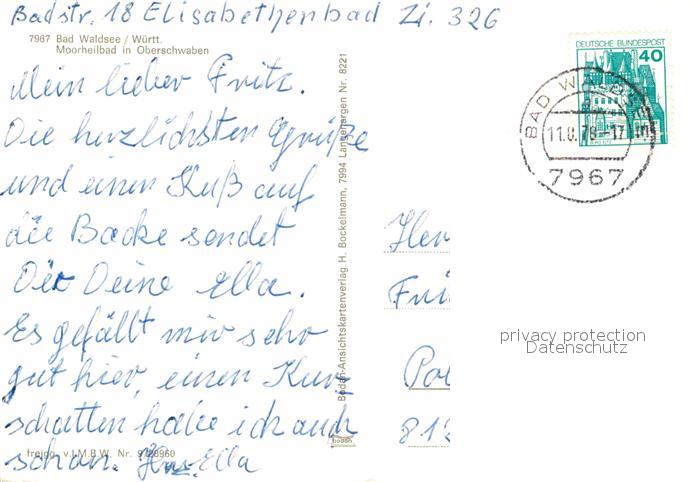 Badstr. 18 Elisabethenbad Zi. 326
7967 Bad Waldsee / Württ.
Moorheilbad in Oberschwaben
Mein lieber Fritz.
Die herzlichsten Grüße
und einen Kuß auf
die Backe sendet
Dir Deine Ella.
Es gefällt mir sehr
gut hier, einen Kur-
schatten habe ich auch
schon. Ella
freigg. v. I.M.B.W. Nr. 9/
Bodan-Ansichtskartenverlag H. Bockelmann, 7994 Langenargen Nr. 8221
bodan
DEUTSCHE BUNDESPOST
40
BAD WALDSEE
7967
Her
Fri
Po
812
privacy protection
Datenschutz